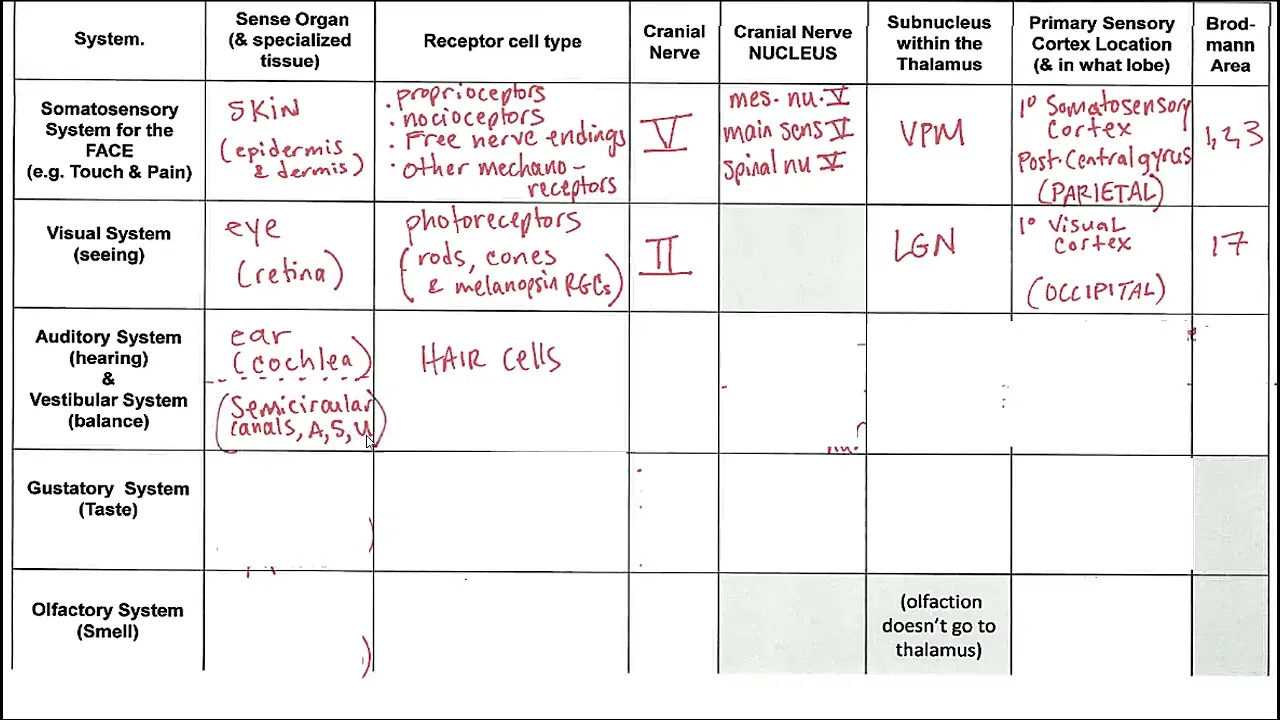 System.
Sense Organ
(& specialized
tissue)
Receptor cell type
Cranial
Nerve
Cranial Nerve
NUCLEUS
Subnucleus
within the
Thalamus
Primary Sensory
Cortex Location
(& in what lobe)
Brod-
mann
Area
Somatosensory
System for the
FACE
(e.g. Touch & Pain)
SKIN
(epidermis
& dermis)
. proprioceptors
. nocioceptors
. Free nerve endings
. other mechano-
receptors
V
mes. nu. V
main sens V
spinal nu V
VPM
1° Somatosensory
Cortex
Post-Central gyrus
(PARIETAL)
1,2,3
Visual System
(seeing)
eye
(retina)
photoreceptors
(rods, cones
& melanopsin RGCs)
II
LGN
1° Visual
Cortex
(OCCIPITAL)
17
Auditory System
(hearing)
&
Vestibular System
(balance)
ear
(cochlea)
(Semicircular
canals, A, S, U)
HAIR cells
Gustatory System
(Taste)
Olfactory System
(Smell)
(olfaction
doesn't go to
thalamus)